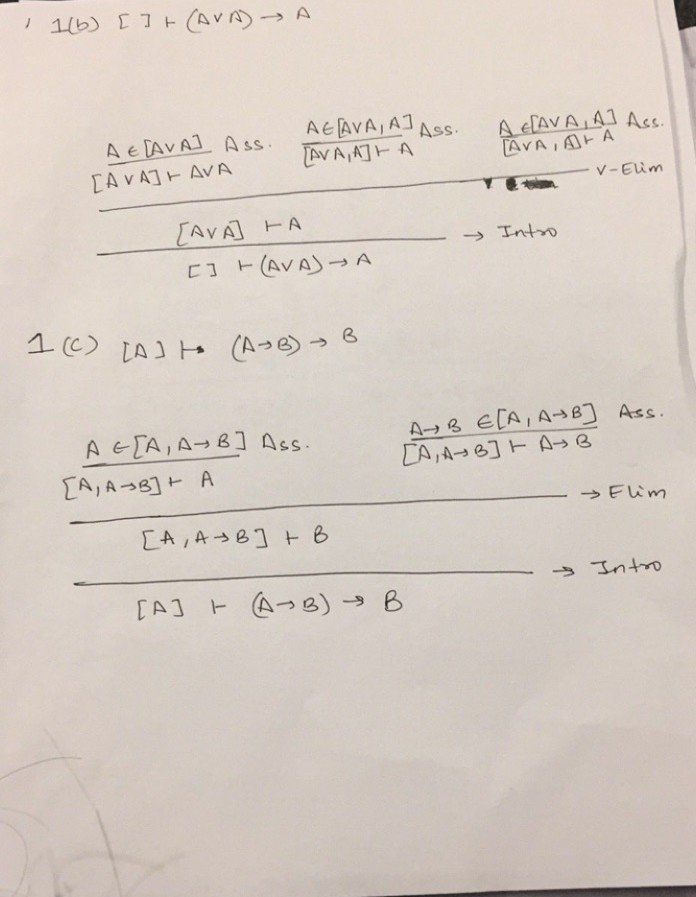 1(b) [ ] ⊢ (A∨A) → A
A ∈ [A∨A] Ass. A ∈ [A∨A, A] Ass. A ∈ [A∨A, A] Ass.
[A∨A] ⊢ A∨A [A∨A, A] ⊢ A [A∨A, A] ⊢ A
∨-Elim
[A∨A] ⊢ A
→ Intro
[ ] ⊢ (A∨A) → A
1(c) [A] ⊢ (A→B) → B
A ∈ [A, A→B] Ass. A→B ∈ [A, A→B] Ass.
[A, A→B] ⊢ A [A, A→B] ⊢ A→B
→ Elim
[A, A→B] ⊢ B
→ Intro
[A] ⊢ (A→B) → B